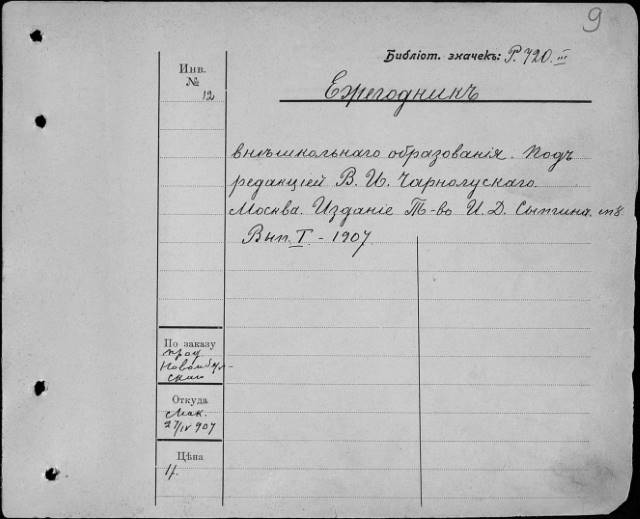 9
Библіот. значекъ: Р. 720. III
Инв.
№
12
Ежегодникъ
внѣшкольнаго образованія. Подъ
редакціей В. И. Чарнолускаго.
Москва. Изданіе Т-во И. Д. Сытина. in 8.
Вып. I - 1907.
По заказу
проф
Откуда
Мак.
27/IV 907
Цѣна